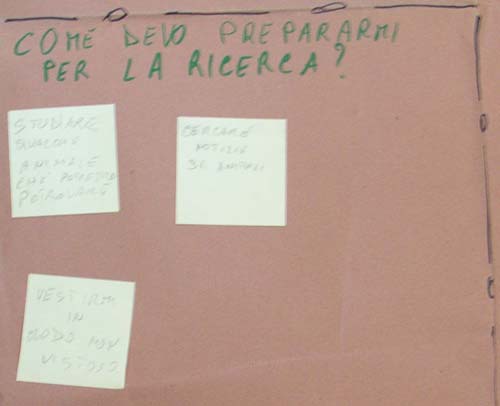 COME DEVO PREPARARMI
PER LA RICERCA?
STUDIARE
QUALCHE
ANIMALE
CHE
CERCARE
NOTIZIE
VESTIRMI
IN
MODO NON
VISTOSO